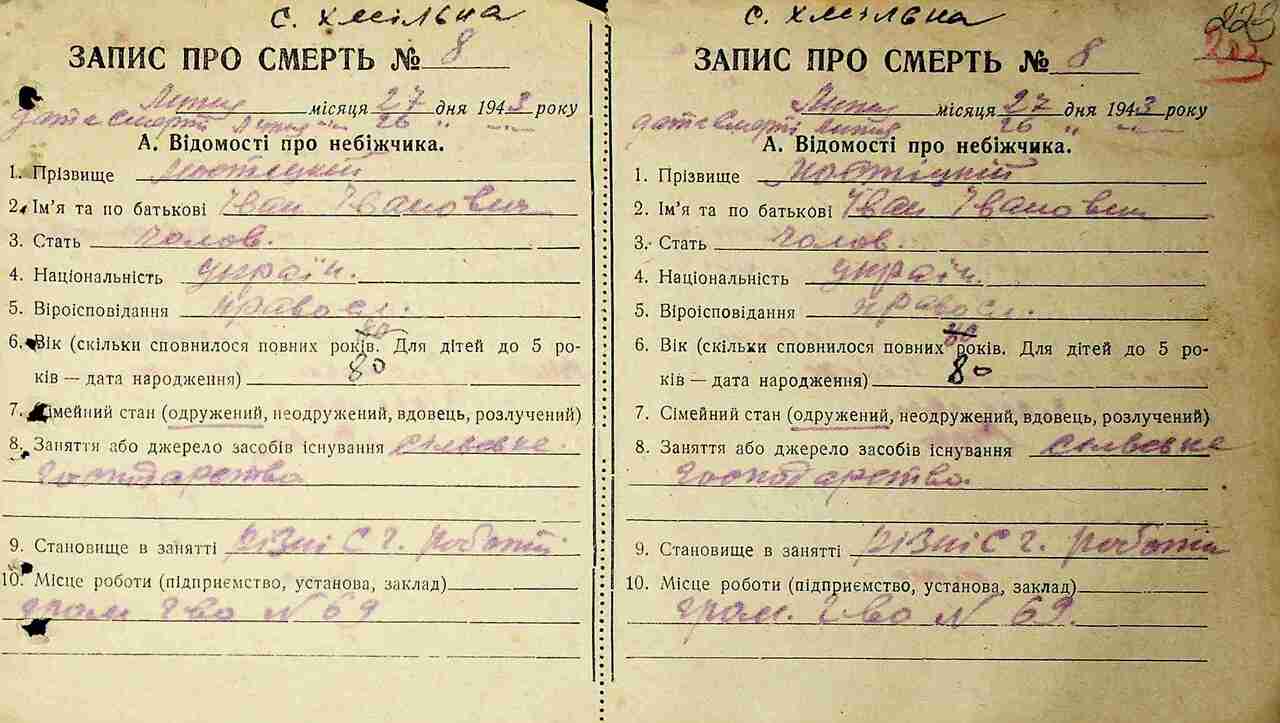 с. Хмільна
ЗАПИС ПРО СМЕРТЬ № 8
Липня місяця 27 дня 1943 року
дата смерті Липня 26 " —"—
А. Відомості про небіжчика.
1. Прізвище
2. Ім'я та по батькові Іван Іванович
3. Стать чолов.
4. Національність україн.
5. Віроісповідання правосл.
80
6. Вік (скільки сповнилося повних років. Для дітей до 5 ро-
ків — дата народження) 80
7. Сімейний стан (одружений, неодружений, вдовець, розлучений)
8. Заняття або джерело засобів існування сільське
господарство
9. Становище в занятті різні с г. роботи
10. Місце роботи (підприємство, установа, заклад)
гром. г-во N 69
с. Хмільна
223
ЗАПИС ПРО СМЕРТЬ № 8
Липня місяця 27 дня 1943 року
дата смерті Липня 26 " —"—
А. Відомості про небіжчика.
1. Прізвище
2. Ім'я та по батькові Іван Іванович
3. Стать чолов.
4. Національність україн.
5. Віроісповідання правосл.
80
6. Вік (скільки сповнилося повних років. Для дітей до 5 ро-
ків — дата народження) 80
7. Сімейний стан (одружений, неодружений, вдовець, розлучений)
8. Заняття або джерело засобів існування сільське
господарство.
9. Становище в занятті різні с г. роботи
10. Місце роботи (підприємство, установа, заклад)
гром. г-во N 69.